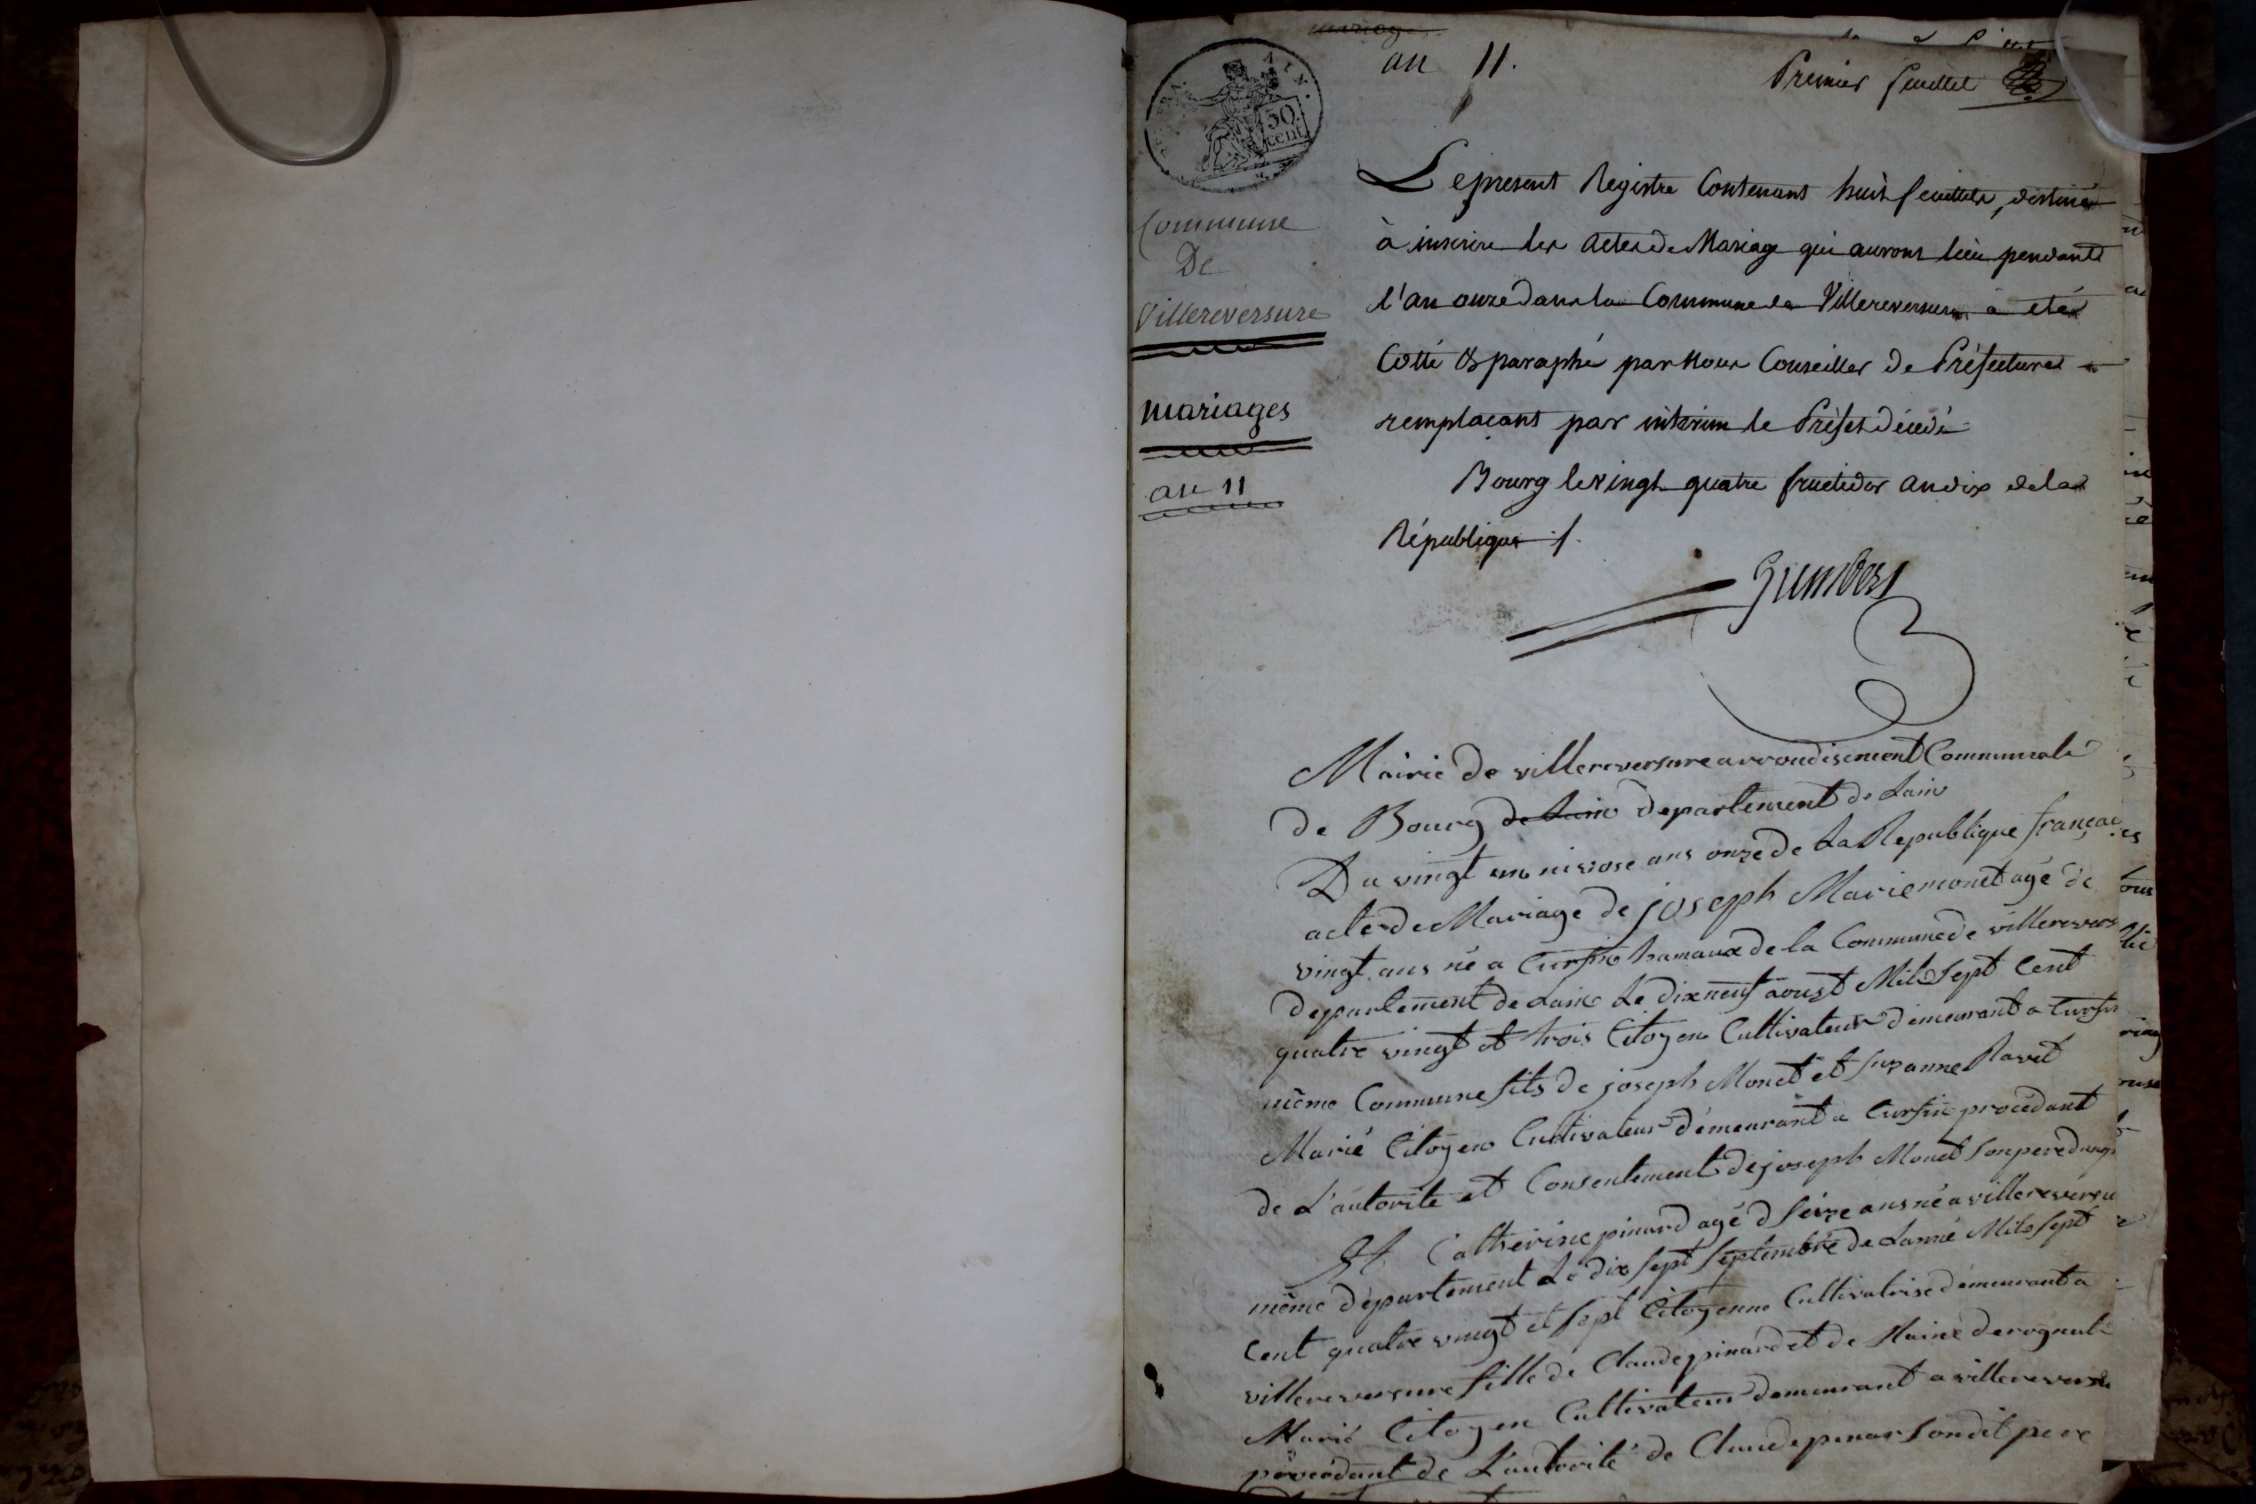 mariage
an 11.
Premier feuillet
AIN.
50
cent
Commune
De
Villereversure
mariages
an 11
Le present Registre Contenant huit feuillets, destiné
à inscrire les Actes de Mariage qui auront lieu pendant
l'an onze dans la Commune de Villereversure a été
Cotté & paraphé par Nous Conseiller de Préfecture
remplaçant par interim le Préfet décédé
Bourg le vingt quatre fructidor an dix de la
République /.
Mairie de villereversure arrondisement Communale
de Bourg de Lain departement de Lain
Du vingt un nivose ans onze de La Republique françai
acte de Mariage de joseph Marie monet agé de
vingt ans né a Cursin hamaux de la Commune de villerevers
departement de Lain Le dixneuf aoust Mil Sept Cent
quatre vingt et trois Citoyen Cultivateur demeurant a Cursin
même Commune fils de joseph Monet et suzanne Ravet
Marié Citoyen Cultivateur demeurant a Cursin procedant
de L'autorite et Consentement de joseph Monet Son pere
Et Catherine pinard agé d Seize ans né a villereversu
même departement Le dix sept Septembre de Lanné Mil Sept
Cent quatre vingt et sept Citoyenne Cultivatrise demeurant a
villereversure fille de Claude pinard et de
Marié Citoyen Cultivateur demeurant a villerevers
procédant de L'autorité de Claude pinar Son dit pere